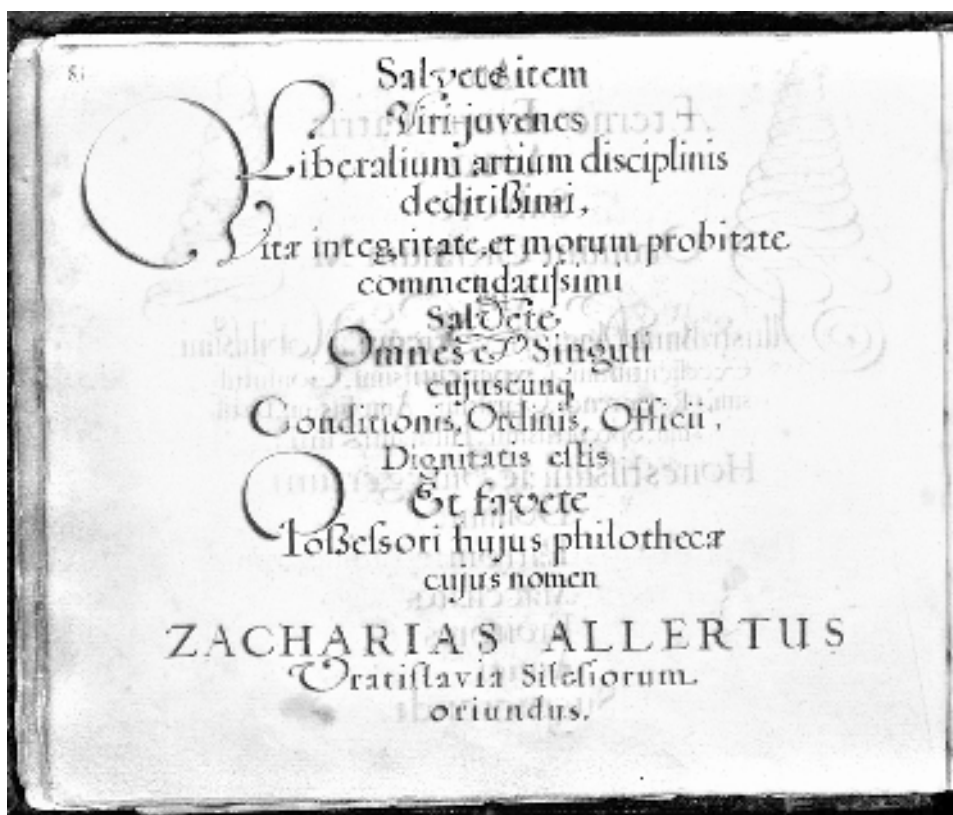 81
Salvete item
Viri juvenes
Liberalium artium disciplinis
deditißimi,
Vitæ integritate, et morum probitate
commendatiſsimi
Salvete
Omnes et Singuli
cujuscunq
Conditionis, Ordinis, Officii,
Dignitatis estis
Et favete
Poßeſsori hujus philothecæ
cujus nomen
ZACHARIAS ALLERTUS
Vratiſlavia Sileſiorum
oriundus.